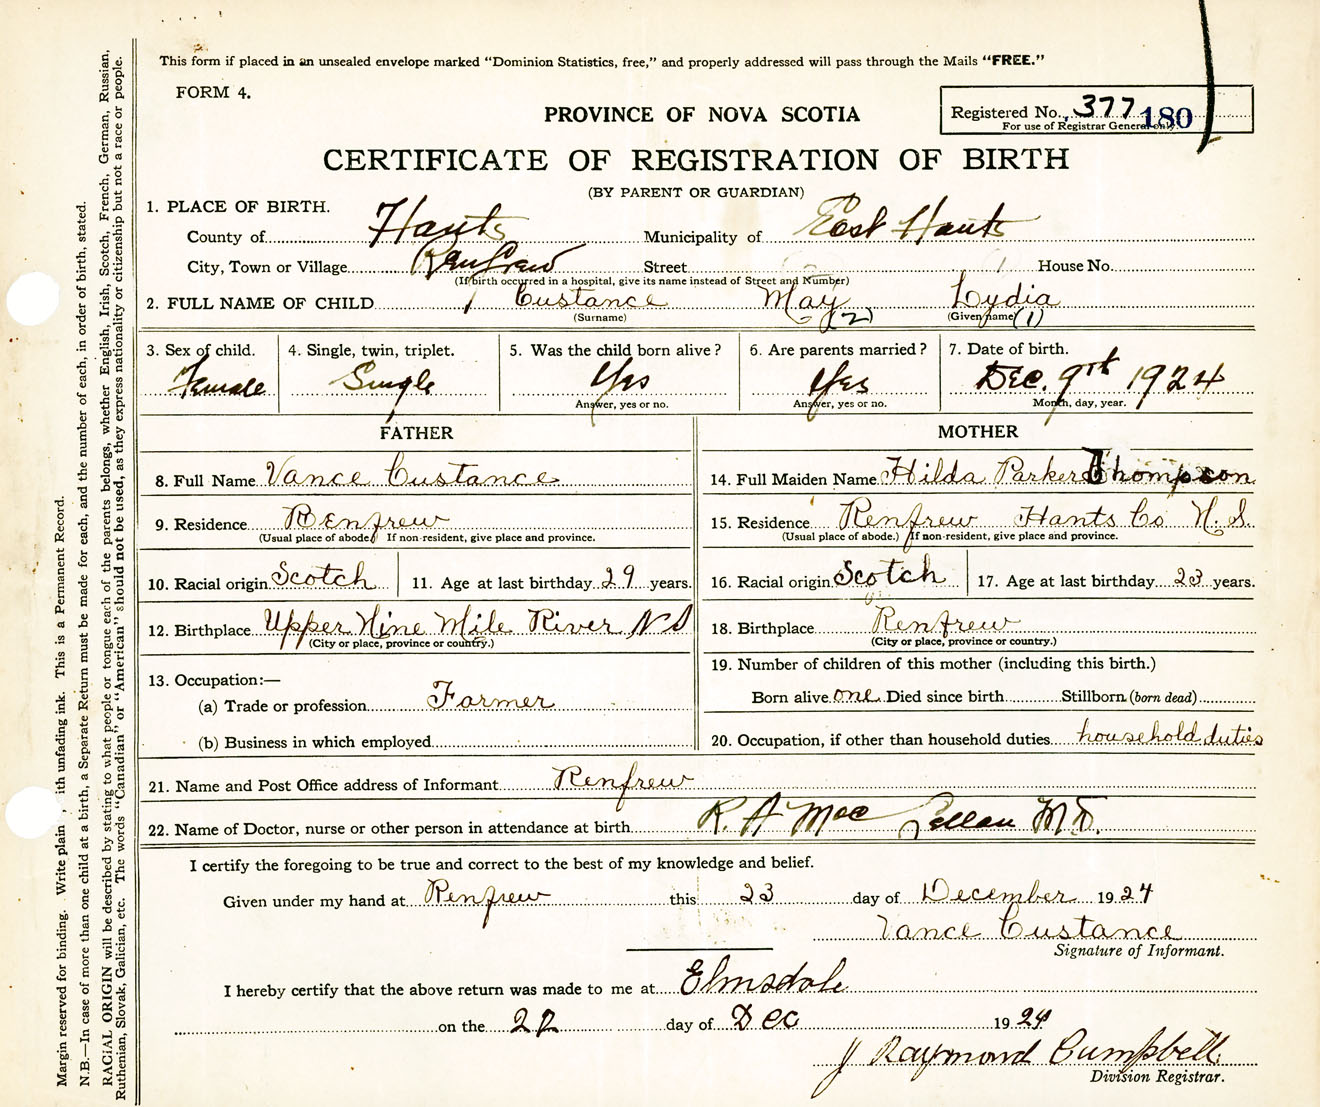 This form if placed in an unsealed envelope marked "Dominion Statistics, free," and properly addressed will pass through the Mails "FREE."
FORM 4.
PROVINCE OF NOVA SCOTIA
Registered No. 377 180
For use of Registrar General only.
CERTIFICATE OF REGISTRATION OF BIRTH
(BY PARENT OR GUARDIAN)
1. PLACE OF BIRTH.
County of Hants Municipality of East Hants
City, Town or Village Renfrew Street House No.
(If birth occurred in a hospital, give its name instead of Street and Number)
2. FULL NAME OF CHILD Custance May Lydia
(Surname) (2) (Given name) (1)
3. Sex of child. 4. Single, twin, triplet. 5. Was the child born alive? 6. Are parents married? 7. Date of birth.
Female Single Yes Yes Dec. 9th 1924
Answer, yes or no. Answer, yes or no. Month, day, year.
FATHER MOTHER
8. Full Name Vance Custance 14. Full Maiden Name Hilda Parker Thompson
9. Residence Renfrew 15. Residence Renfrew Hants Co N. S.
(Usual place of abode.) If non-resident, give place and province. (Usual place of abode.) If non-resident, give place and province.
10. Racial origin Scotch 11. Age at last birthday 29 years. 16. Racial origin Scotch 17. Age at last birthday 23 years.
12. Birthplace Upper Nine Mile River N S 18. Birthplace Renfrew
(City or place, province or country.) (City or place, province or country.)
13. Occupation:— 19. Number of children of this mother (including this birth.)
(a) Trade or profession Farmer Born alive one Died since birth Stillborn (born dead)
(b) Business in which employed 20. Occupation, if other than household duties household duties
21. Name and Post Office address of Informant Renfrew
22. Name of Doctor, nurse or other person in attendance at birth R. A Mac Lellan M D.
I certify the foregoing to be true and correct to the best of my knowledge and belief.
Given under my hand at Renfrew this 23 day of December 1924
Vance Custance
Signature of Informant.
I hereby certify that the above return was made to me at Elmsdale
on the day of Dec 1924
J Raymond Campbell
Division Registrar.
Margin reserved for binding. Write plain ith unfading ink. This is a Permanent Record.
N.B.—In case of more than one child at a birth, a Separate Return must be made for each, and the number of each, in order of birth, stated.
RACIAL ORIGIN will be described by stating to what people or tongue each of the parents belongs, whether English, Irish, Scotch, French, German, Russian,
Ruthenian, Slovak, Galician, etc. The words "Canadian" or "American" should not be used, as they express nationality or citizenship but not a race or people.